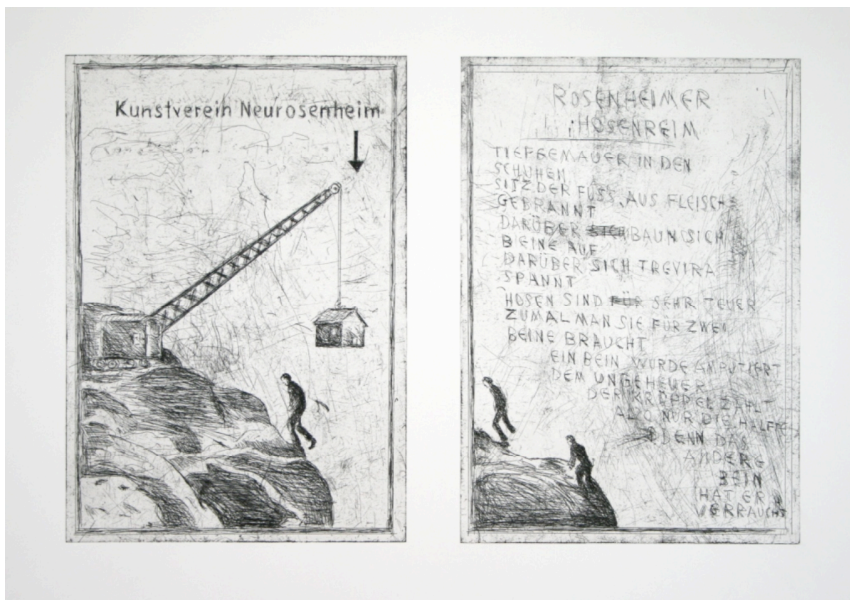 Kunstverein Neurosenheim
ROSENHEIMER
HOSENREIM
TIEFGEMAUER IN DEN
SCHUHEN
SITZ DER FUSS, AUS FLEISCHE
GEBRANNT
DARÜBER BAUN SICH
BEINE AUF
DARÜBER SICH TREVIRA
SPANNT
HOSEN SIND FÜR SEHR TEUER
ZUMAL MAN SIE FÜR ZWEI
BEINE BRAUCHT
EIN BEIN WURDE AMPUTIERT
DEM UNGEHEUER
DER KRÜPPEL ZAHLT
ALSO NUR DIE HÄLFTE
DENN DAS
ANDERE
BEIN
HAT ER
VERRAUCHT